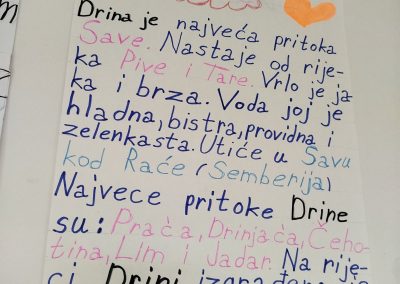 Drina je najveća pritoka
Save. Nastaje od rije-
ka Pive i Tare. Vrlo je ja-
ka i brza. Voda joj je
hladna, bistra, providna i
zelenkasta. Utiče u Savu
kod Rače (Semberija)
Najvece pritoke Drine
su: Prača, Drinjača, Ćeho-
tina, Lim i Jadar. Na rije-
ci Drini